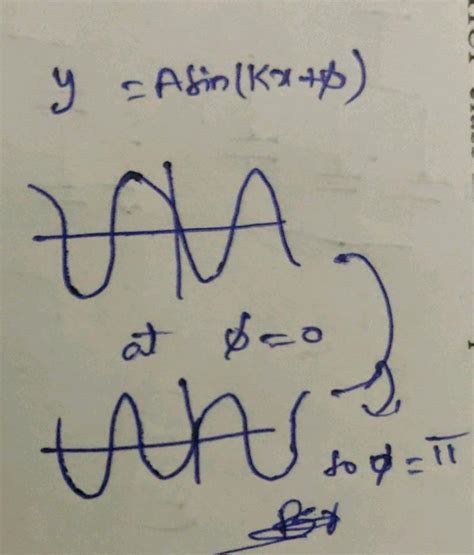 y = A sin(Kx+ϕ)
at ϕ=0
so ϕ=π